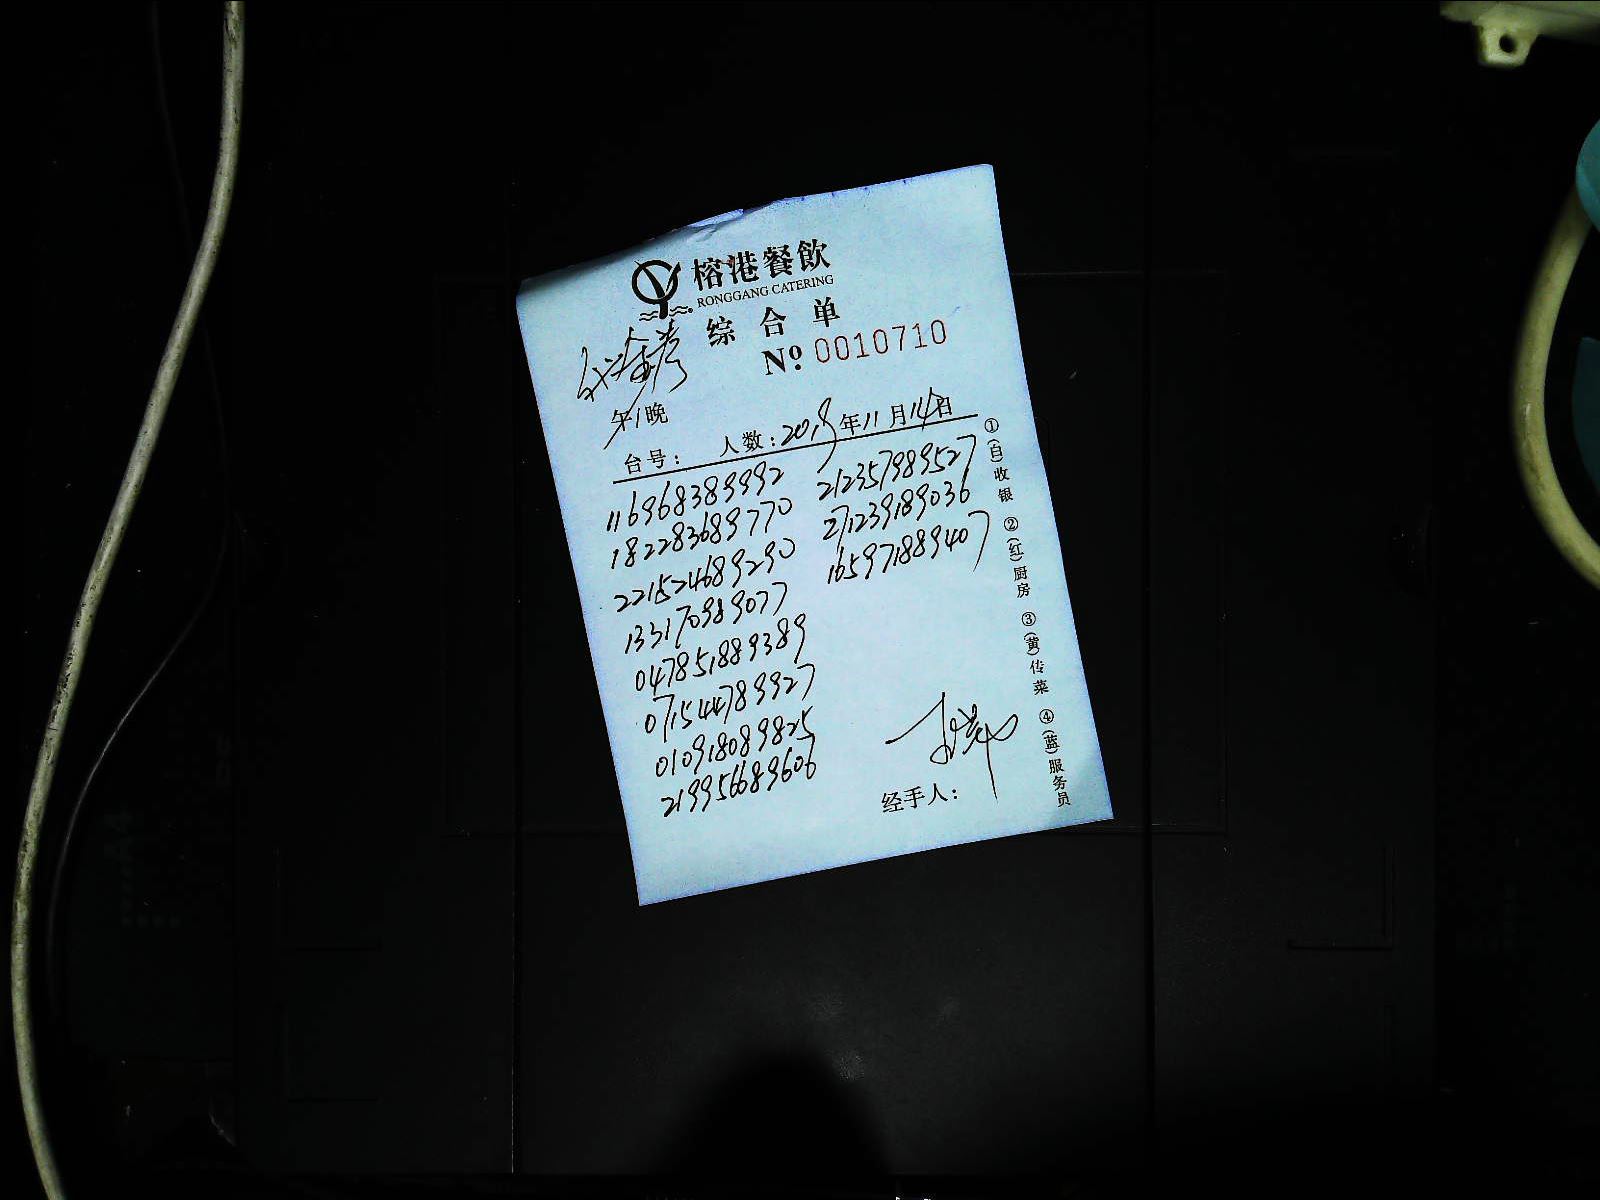 榕港餐飲
RONGGANG CATERING
综合单
№ 0010710
午/晚
台号： 人数：2019年11月14日
116968389992
182283689770
221524689290
133170989077
047851889389
071544789927
010918089825
219956689606
212357989527
271239189036
165971889407
①(白)收银 ②(红)厨房 ③(黄)传菜 ④(蓝)服务员
经手人：